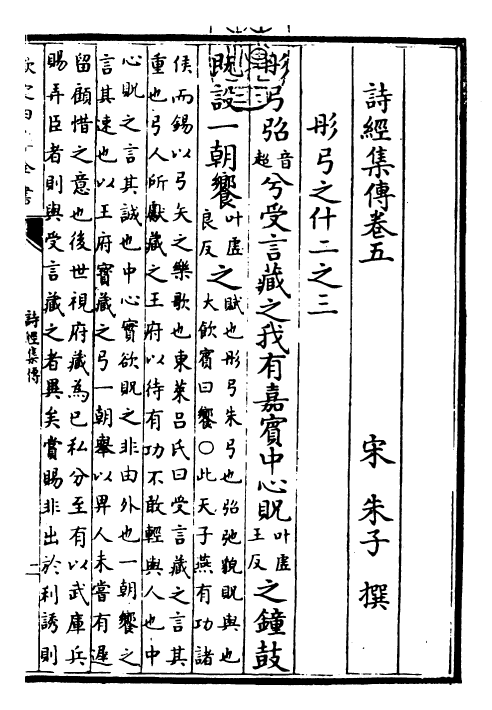 詩經集傳卷五
宋 朱子 撰
彤弓之什二之三
彤弓弨音超兮受言藏之我有嘉賓中心貺叶虛王反之鐘鼓
既設一朝饗叶虛良反之賦也彤弓朱弓也弨弛貌貺與也大飲賓曰饗○此天子燕有功諸
侯而錫以弓矢之樂歌也東萊呂氏曰受言藏之言其
重也弓人所獻藏之王府以待有功不敢輕與人也中
心貺之言其誠也中心實欲貺之非由外也一朝饗之
言其速也以王府寳藏之弓一朝舉以畀人未嘗有遲
留顧惜之意也後世視府藏為已私分至有以武庫兵
賜弄臣者則與受言藏之者異矣賞賜非出於利誘則
詩經集傳